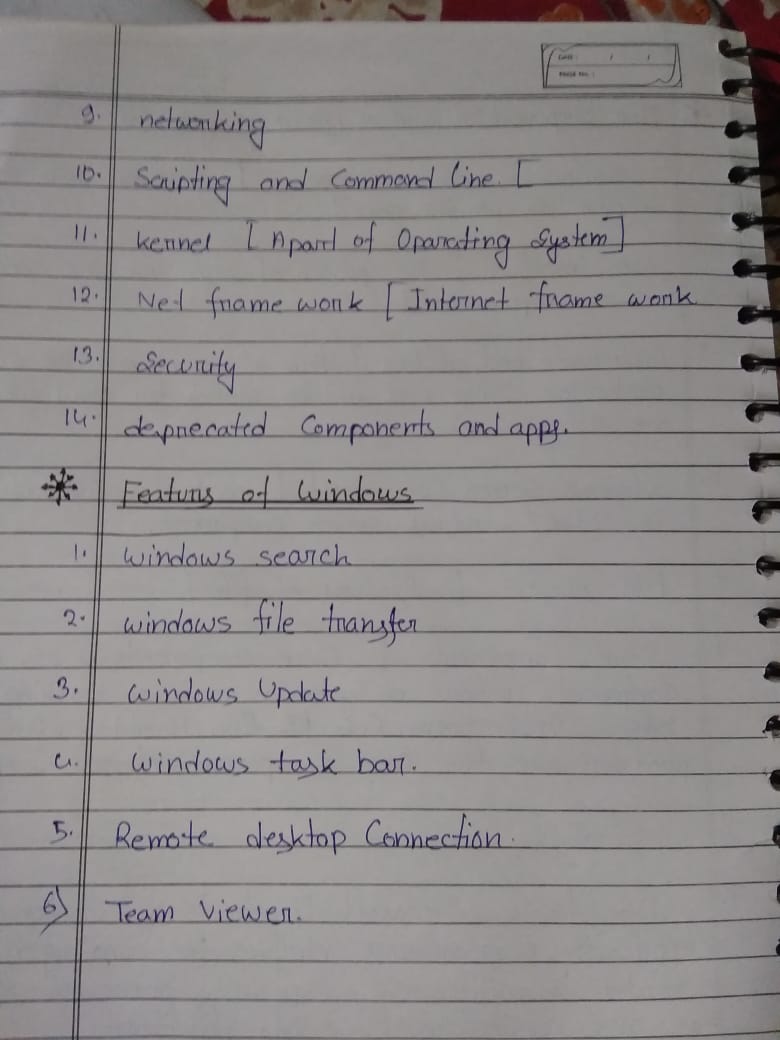 DATE : / /
PAGE NO. :
9. networking
10. Scripting and Command line. [
11. kernel [Apart of Oparating System]
12. Net frame work [Internet frame work
13. Security
14. deprecated Components and apps.
Featurs of windows
1. windows search
2. windows file transfer
3. windows Update
4. windows task bar.
5. Remote desktop Connection.
6) Team viewer.